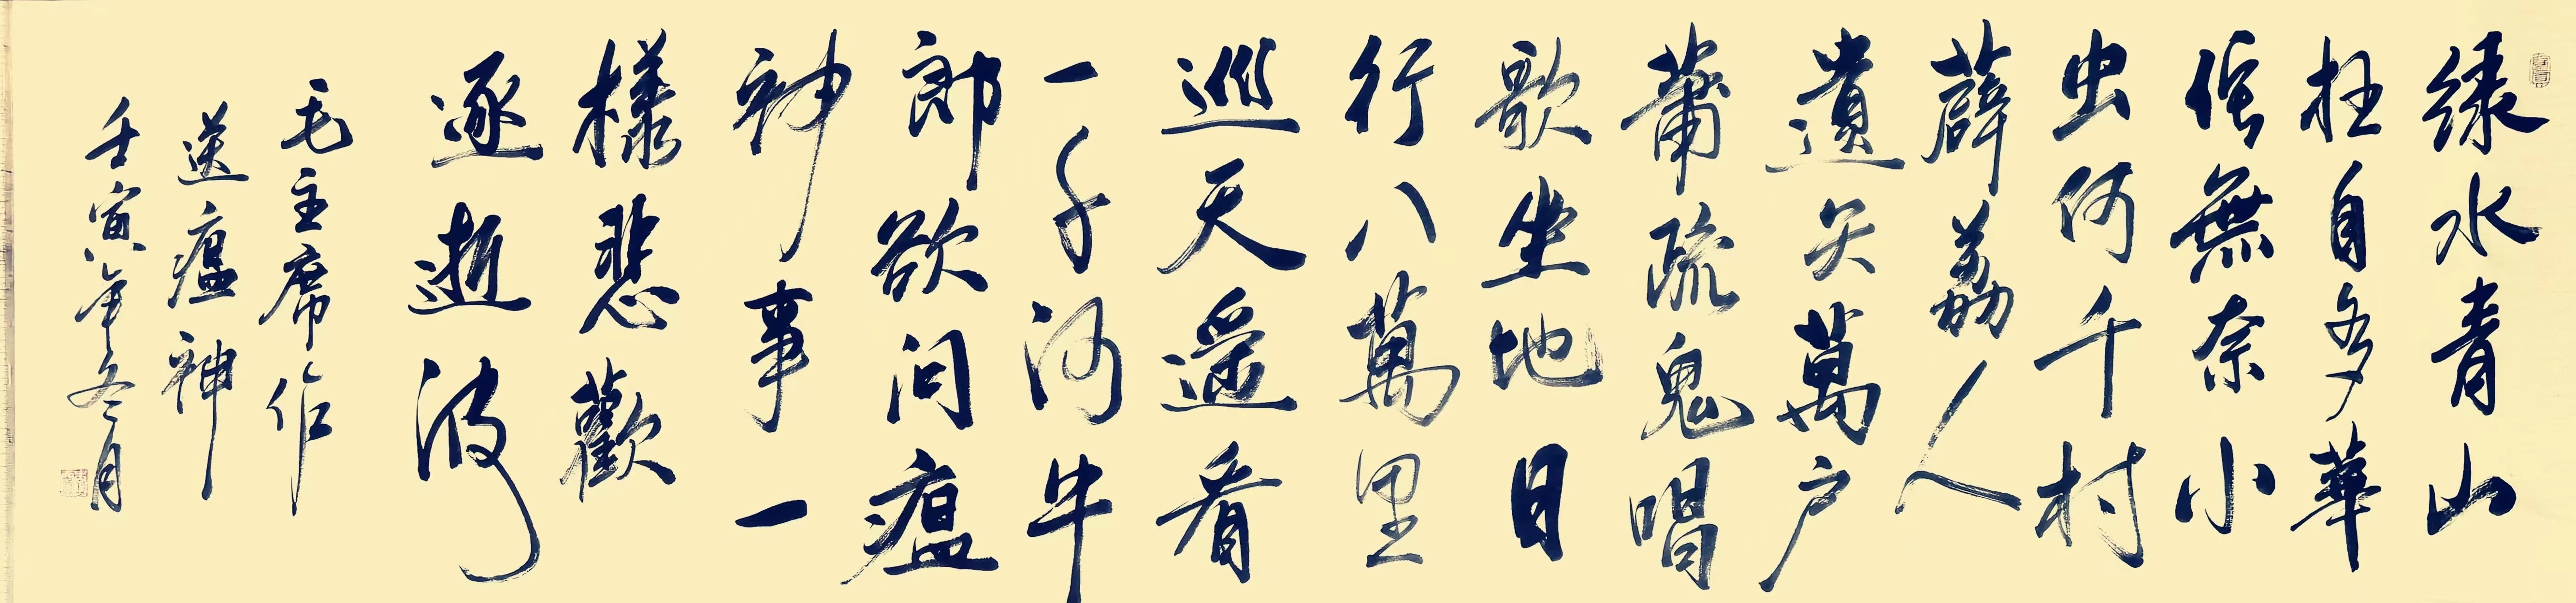 緑水青山
枉自多華
佗無奈小
虫何千村
薜荔人
遺矢萬户
蕭疏鬼唱
歌坐地日
行八萬里
巡天遥看
一千河牛
郎欲问瘟
神事一
樣悲歡
逐逝波
毛主席作
送瘟神
壬寅年冬月